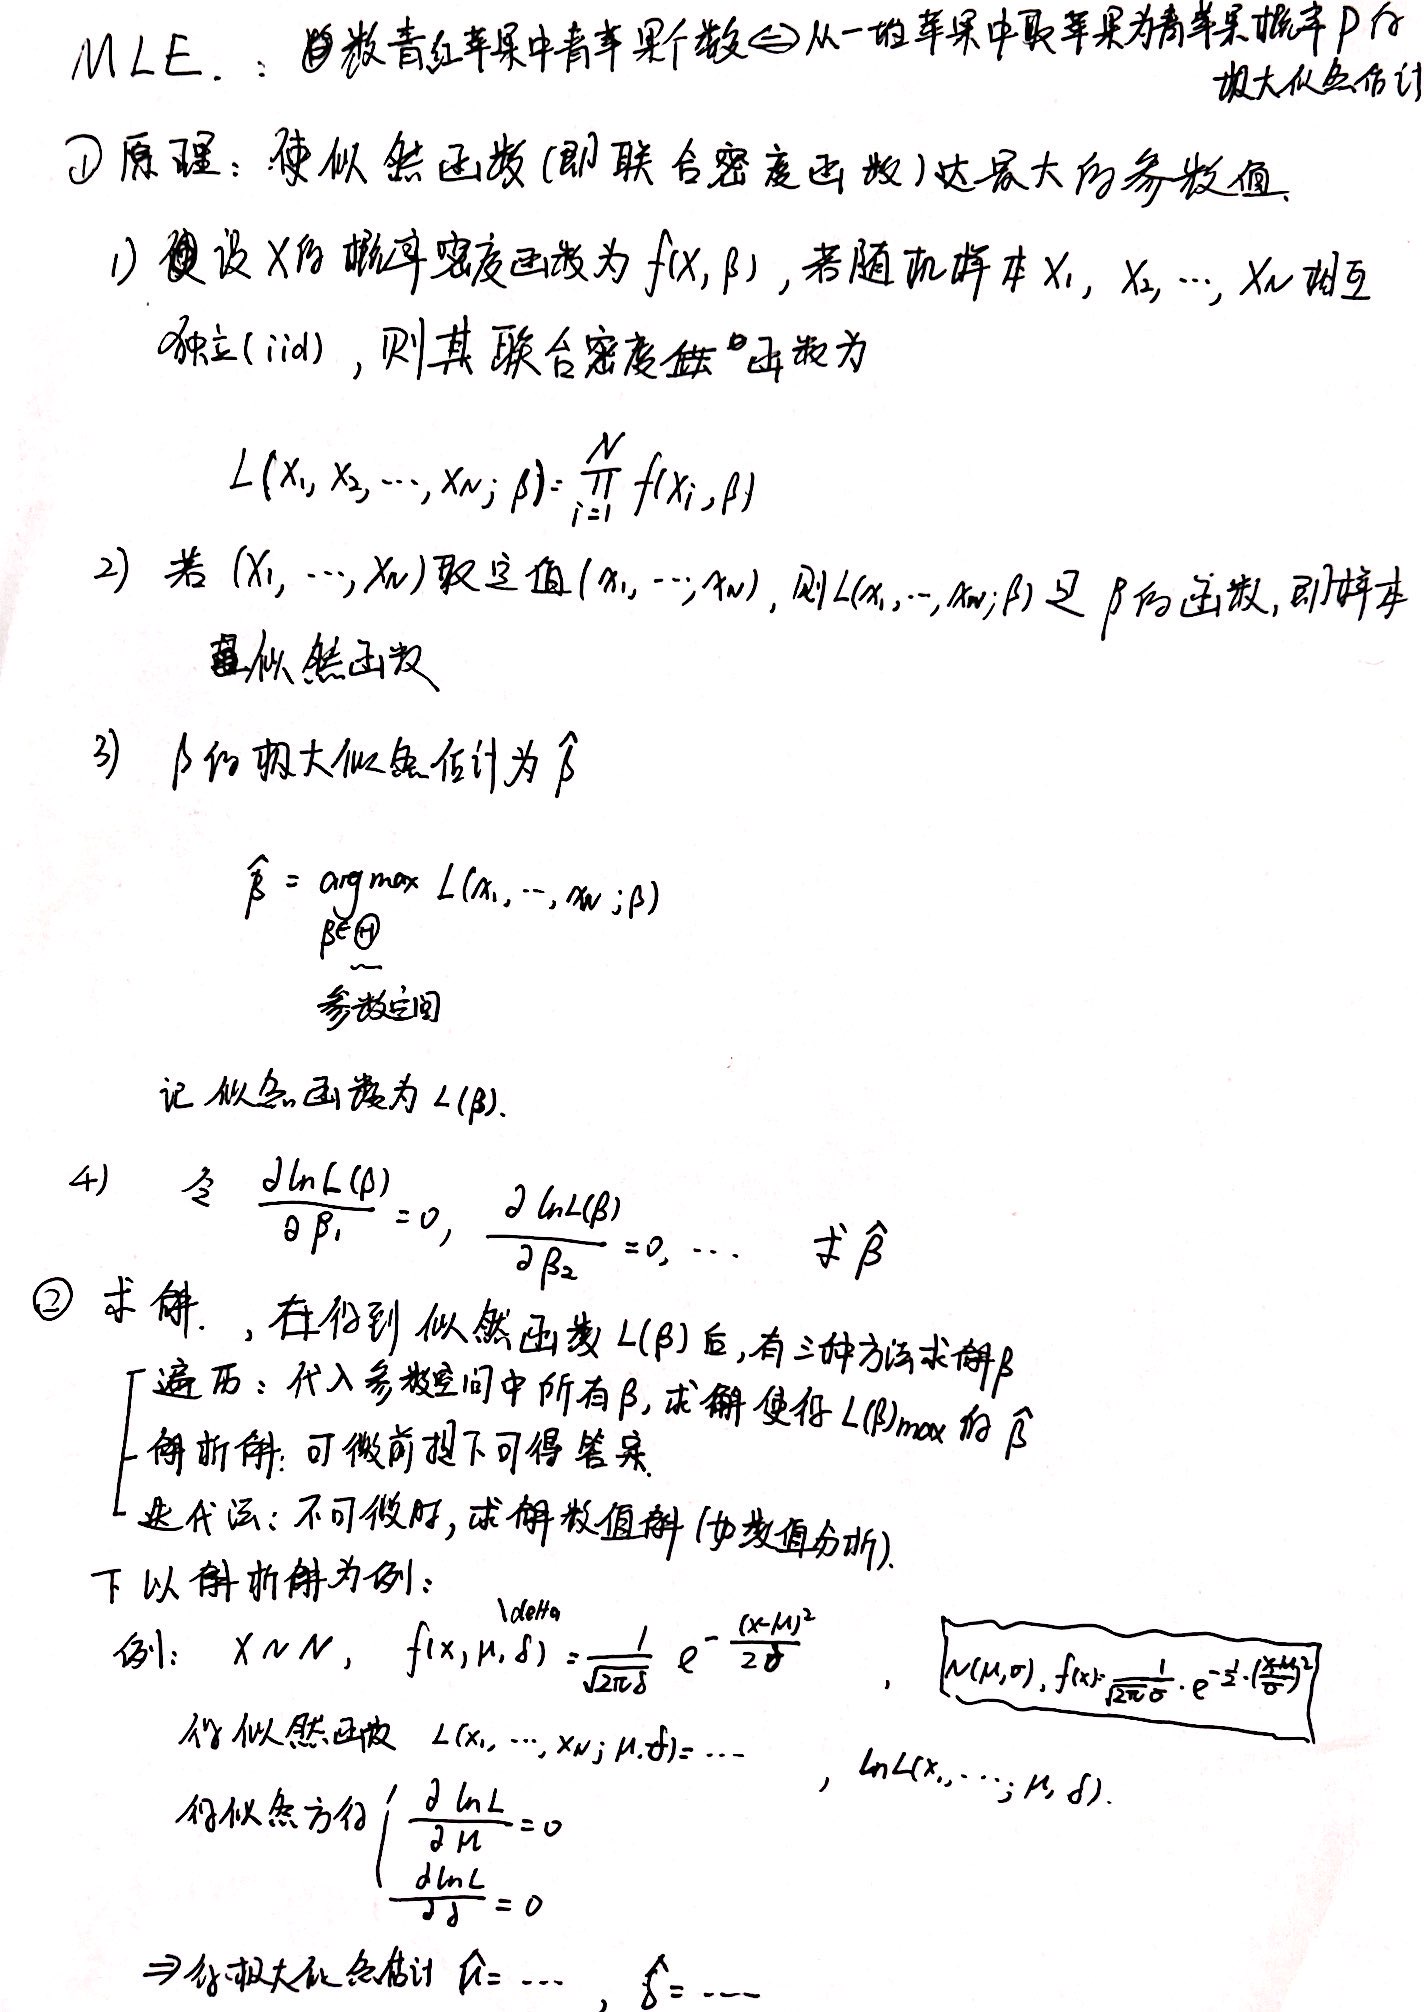 MLE. : 数青红苹果中青苹果个数⇔从一堆苹果中取苹果为青苹果概率P的
极大似然估计
① 原理: 使似然函数(即联合密度函数)达最大的参数值.
1) 设X的概率密度函数为 f(X, β), 若随机样本 X₁, X₂, ⋯, X_N 相互
独立(iid), 则其联合密度函数为
L(X₁, X₂, ⋯, X_N; β) = ∏_{i=1}^{N} f(X_i, β)
2) 若 (X₁, ⋯, X_N) 取定值 (x₁, ⋯, x_N), 则 L(x₁, ⋯, x_N; β) 是 β 的函数, 即样本
似然函数
3) β的极大似然估计为 β̂
β̂ = argmax_{β∈Θ} L(x₁, ⋯, x_N; β)
参数空间
记似然函数为 L(β).
4) 令 ∂lnL(β)/∂β₁ = 0, ∂lnL(β)/∂β₂ = 0, ⋯ 求 β̂
② 求解. , 在得到似然函数 L(β) 后, 有三种方法求解β
遍历: 代入参数空间中所有β, 求解使得 L(β)max 的 β̂
解析解: 可微前提下可得答案.
迭代法: 不可微时, 求解数值解 (如数值分析).
下以解析解为例:
\delta
例: X ~ N, f(x, μ, δ) = 1/√(2πδ) e^{-(x-μ)²/2δ} , N(μ,σ), f(x)= 1/(√2π σ) · e^{-1/2·((x-μ)/σ)²}
得似然函数 L(x₁, ⋯, x_N; μ, δ) = ⋯ , lnL(x₁, ⋯; μ, δ).
得似然方程 { ∂lnL/∂μ = 0
∂lnL/∂δ = 0
⇒ 得极大似然估计 μ̂ = ⋯ , δ̂ = ⋯